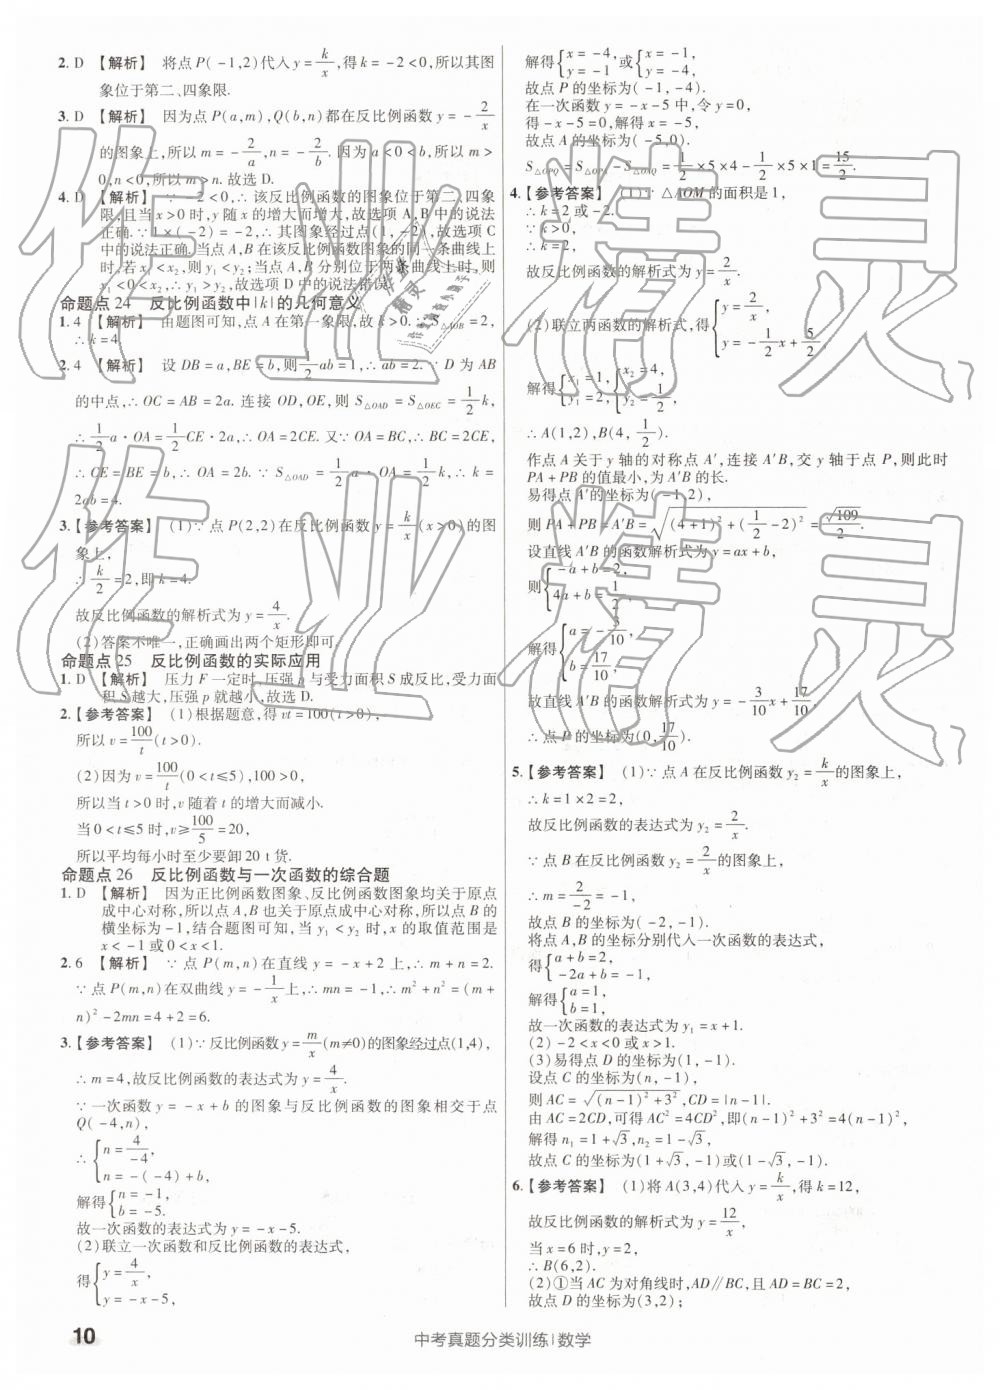 2. D 【解析】 将点 P(-1,2)代入 y=k/x,得 k=-2<0,所以其图
象位于第二、四象限.
3. D 【解析】 因为点 P(a,m),Q(b,n)都在反比例函数 y=-2/x
的图象上,所以 m=-2/a,n=-2/b.因为 a<0<b,所以 m>
0,n<0,所以 m>n.故选 D.
4. D 【解析】 ∵-2<0,∴该反比例函数的图象位于第二、四象
限,且当 x>0 时,y 随 x 的增大而增大,故选项 A,B 中的说法
正确.∵1×(-2)=-2,∴其图象经过点(1,-2),故选项 C
中的说法正确.当点 A,B 在该反比例函数图象的同一条曲线上
时,若 x₁<x₂,则 y₁<y₂;当点 A,B 分别位于两条曲线上时,则
y₁<0<y₂,故选项 D 中的说法错误.
命题点 24 反比例函数中|k|的几何意义
1. 4 【解析】 由题图可知,点 A 在第一象限,故 k>0.∵S△AOB=2,
∴k=4.
2. 4 【解析】 设 DB=a,BE=b,则 1/2 ab=1,∴ab=2.∵D 为 AB
的中点,∴OC=AB=2a.连接 OD,OE,则 S△OAD=S△OEC=1/2 k,
∴1/2 a·OA=1/2 CE·2a,∴OA=2CE.又∵OA=BC,∴BC=2CE,
∴CE=BE=b,∴OA=2b.∵S△OAD=1/2 a·OA=1/2 k,∴k=
2ab=4.
3.【参考答案】 (1)∵点 P(2,2)在反比例函数 y=k/x(x>0)的图
象上,
∴k/2=2,即 k=4.
故反比例函数的解析式为 y=4/x.
(2)答案不唯一,正确画出两个矩形即可.
命题点 25 反比例函数的实际应用
1. D 【解析】 压力 F 一定时,压强 p 与受力面积 S 成反比,受力面
积 S 越大,压强 p 就越小,故选 D.
2.【参考答案】 (1)根据题意,得 vt=100(t>0),
所以 v=100/t(t>0).
(2)因为 v=100/t(0<t≤5),100>0,
所以当 t>0 时,v 随着 t 的增大而减小.
当 0<t≤5 时,v≥100/5=20,
所以平均每小时至少要卸 20 t 货.
命题点 26 反比例函数与一次函数的综合题
1. D 【解析】 因为正比例函数图象、反比例函数图象均关于原点
成中心对称,所以点 A,B 也关于原点成中心对称,所以点 B 的
横坐标为-1,结合题图可知,当 y₁<y₂ 时,x 的取值范围是
x<-1 或 0<x<1.
2. 6 【解析】 ∵点 P(m,n)在直线 y=-x+2 上,∴m+n=2.
∵点 P(m,n)在双曲线 y=-1/x 上,∴mn=-1,∴m²+n²=(m+
n)²-2mn=4+2=6.
3.【参考答案】 (1)∵反比例函数 y=m/x(m≠0)的图象经过点(1,4),
∴m=4,故反比例函数的表达式为 y=4/x.
∵一次函数 y=-x+b 的图象与反比例函数的图象相交于点
Q(-4,n),
∴{n=4/-4,
n=-(-4)+b,
解得{n=-1,
b=-5.
故一次函数的表达式为 y=-x-5.
(2)联立一次函数和反比例函数的表达式,
得{y=4/x,
y=-x-5,
解得{x=-4,
y=-1 或{x=-1,
y=-4.
故点 P 的坐标为(-1,-4).
在一次函数 y=-x-5 中,令 y=0,
得-x-5=0,解得 x=-5,
故点 A 的坐标为(-5,0).
S△OPQ=S△OPA-S△OAQ=1/2×5×4-1/2×5×1=15/2.
4.【参考答案】 (1)∵△AOM 的面积是 1,
∴k=2 或-2.
∵k>0,
∴k=2,
故反比例函数的解析式为 y=2/x.
(2)联立两函数的解析式,得{y=2/x,
y=-1/2 x+5/2,
解得{x₁=1,
y₁=2,{x₂=4,
y₂=1/2,
∴A(1,2),B(4,1/2).
作点 A 关于 y 轴的对称点 A′,连接 A′B,交 y 轴于点 P,则此时
PA+PB 的值最小,为 A′B 的长.
易得点 A′的坐标为(-1,2),
则 PA+PB=A′B=√((4+1)²+(1/2-2)²)=√109/2.
设直线 A′B 的函数解析式为 y=ax+b,
则{-a+b=2,
4a+b=1/2,
解得{a=-3/10,
b=17/10.
故直线 A′B 的函数解析式为 y=-3/10 x+17/10,
∴点 P 的坐标为(0,17/10).
5.【参考答案】 (1)∵点 A 在反比例函数 y₂=k/x的图象上,
∴k=1×2=2,
故反比例函数的表达式为 y₂=2/x.
∵点 B 在反比例函数 y₂=2/x的图象上,
∴m=2/-2=-1,
故点 B 的坐标为(-2,-1).
将点 A,B 的坐标分别代入一次函数的表达式,
得{a+b=2,
-2a+b=-1,
解得{a=1,
b=1,
故一次函数的表达式为 y₁=x+1.
(2)-2<x<0 或 x>1.
(3)易得点 D 的坐标为(1,-1).
设点 C 的坐标为(n,-1),
则 AC=√((n-1)²+3²),CD=|n-1|.
由 AC=2CD,可得 AC²=4CD²,即(n-1)²+3²=4(n-1)²,
解得 n₁=1+√3,n₂=1-√3,
故点 C 的坐标为(1+√3,-1)或(1-√3,-1).
6.【参考答案】 (1)将 A(3,4)代入 y=k/x,得 k=12,
故反比例函数的解析式为 y=12/x,
当 x=6 时,y=2,
∴B(6,2).
(2)①当 AC 为对角线时,AD∥BC,且 AD=BC=2,
故点 D 的坐标为(3,2);
10
中考真题分类训练|数学
作业精灵
作业精灵